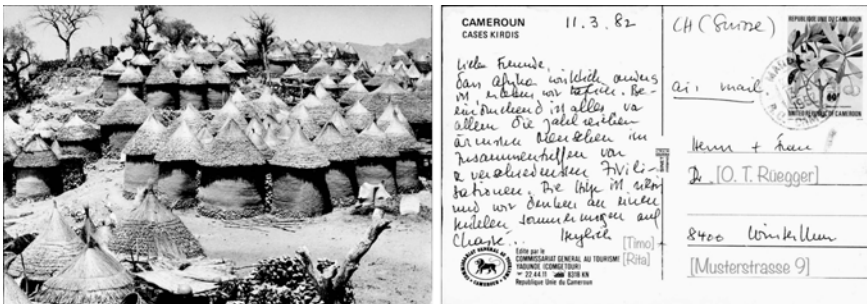 CAMEROUN
CASES KIRDIS
11.3.82
Liebe Freunde,
dass Afrika wirklich anders
ist erleben wir täglich. Be-
eindruckend ist alles vor
allem die zahlreichen
ärmsten Menschen im
Zusammentreffen von
2 verschiedensten Zivili-
sationen. Die Hitze ist
und wir denken an einen
kühlen Sommermorgen auf
Herzlich
[Timo]
[Rita]
Edité par le
COMMISSARIAT GENERAL AU TOURISME
YAOUNDE (COMGETOUR)
22 44.11 8318 KN
République Unie du Cameroun
CH (Suisse)
air mail.
REPUBLIQUE UNIE DU CAMEROUN
UNITED REPUBLIC OF CAMEROON
Herrn + Frau
Dr. [O. T. Rüegger]
8400 Winterthur
[Musterstrasse 9]